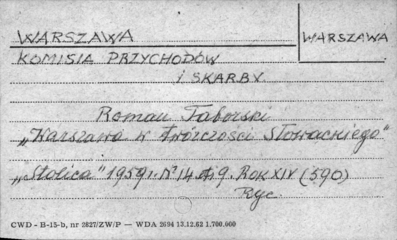 WARSZAWA
WARSZAWA
KOMISIA PRZYCHODÓW
i SKARBU
Roman Taborski
„Warszawa w twórczości Słowackiego"
„Stolica" 1959r. Nº 14 9. ROK XIV (590)
Ryc.
CWD - B-15-b, nr 2827/ZW/P — WDA 2694 13.12.62 1.700.000